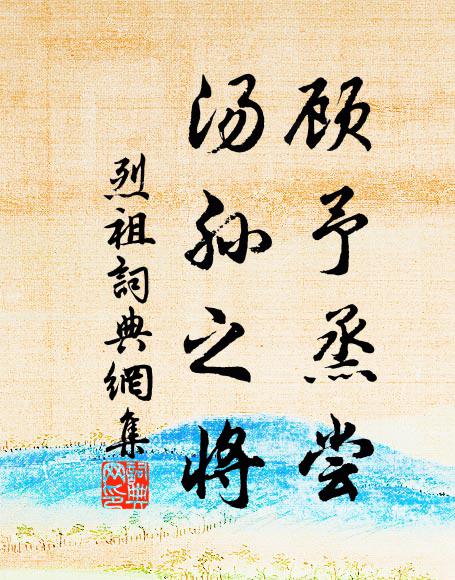 顾予蒸尝
汤孙之将
烈祖詞典網集